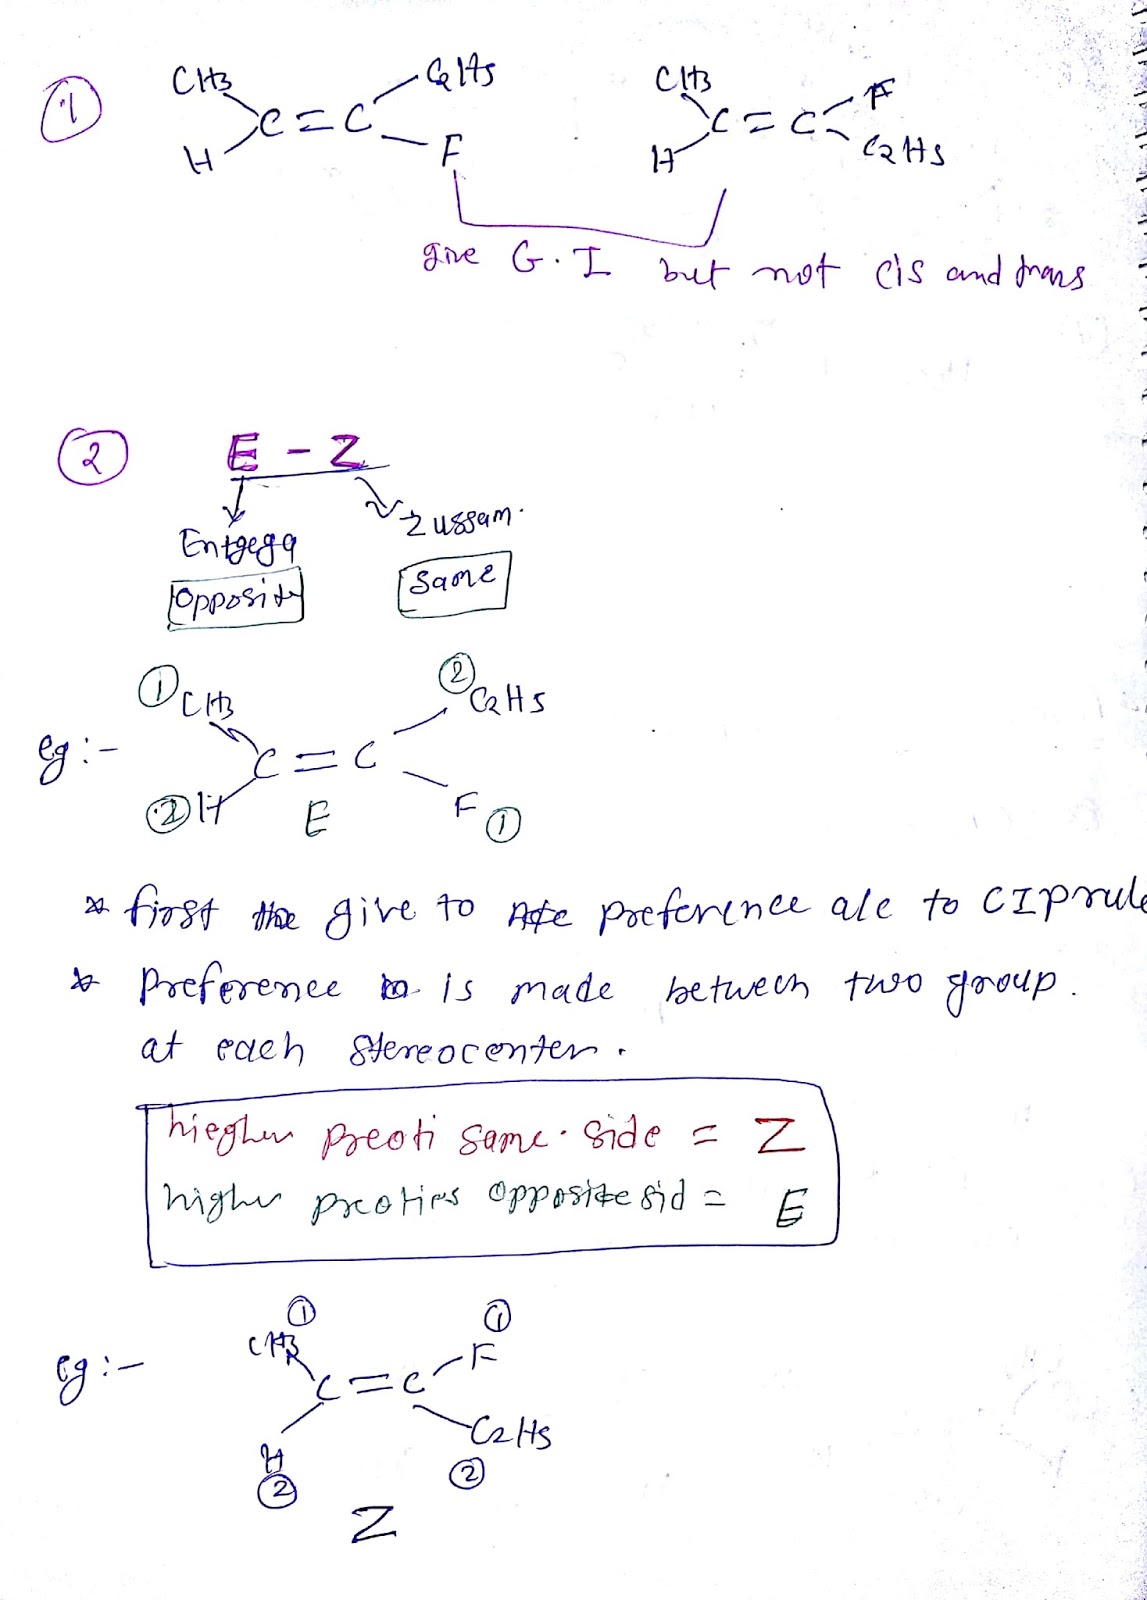 ①
CH3 C2H5 CH3 F
C=C C=C
H F H C2H5
give G.I but not cis and trans
② E - Z
Entgegq Zussam.
Opposit Same
① CH3 ② C2H5
eg:- C=C
② H E F ①
* first the give to preference alc to CIP rule
* Preference is made between two group.
at each stereocenter.
hiegher preoti same. side = Z
higher preoties opposite sid = E
① ①
CH3 F
eg:- C=C
H C2H5
② ②
Z